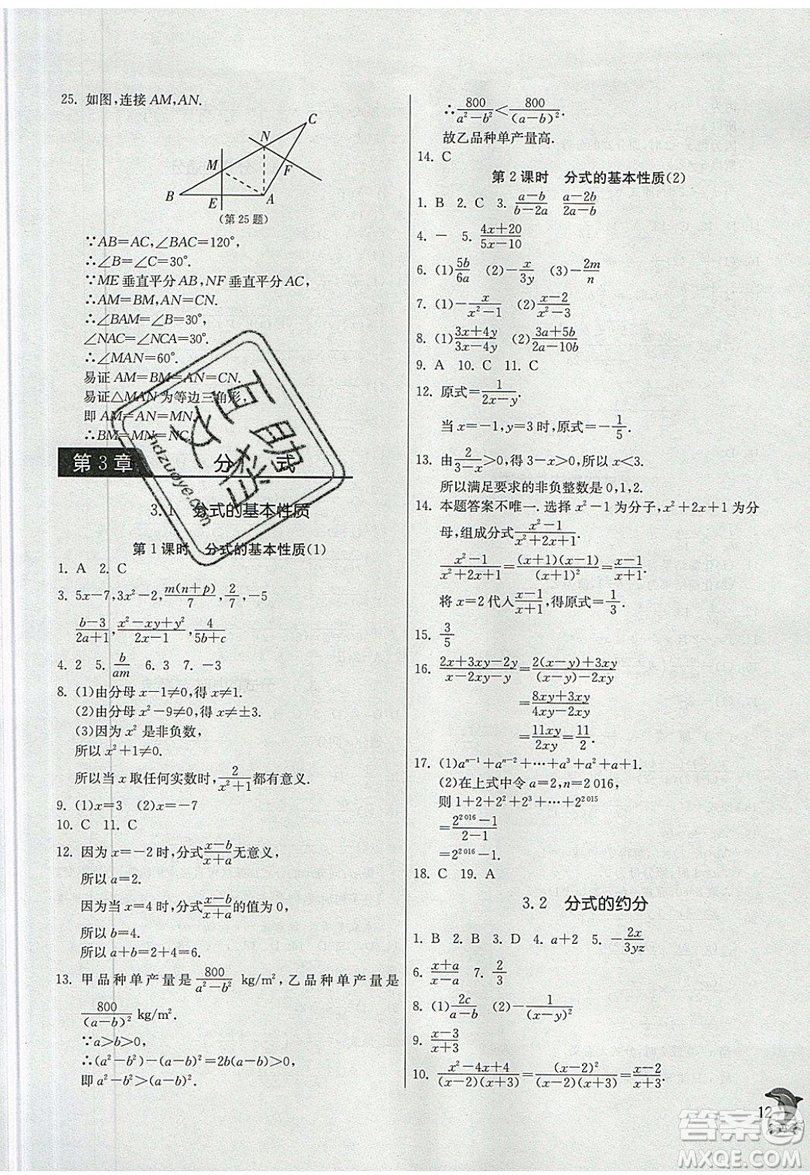 25. 如图,连接 AM,AN.
C
N
M
F
B
E
A
(第 25 题)
∵AB=AC,∠BAC=120°,
∴∠B=∠C=30°.
∵ME 垂直平分 AB,NF 垂直平分 AC,
∴AM=BM,AN=CN.
∴∠BAM=∠B=30°,
∠NAC=∠NCA=30°.
∴∠MAN=60°.
易证 AM=BM=AN=CN.
易证△MAN 为等边三角形.
即 AM=AN=MN,
∴BM=MN=NC.
第 3 章 分 式
3.1 分式的基本性质
第 1 课时 分式的基本性质(1)
1. A 2. C
3. 5x-7,3x²-2,m(n+p)/7,2/7,-5
(b-3)/(2a+1),(x²-xy+y²)/(2x-1),4/(5b+c)
4. 2 5. b/am 6. 3 7. -3
8. (1)由分母 x-1≠0,得 x≠1.
(2)由分母 x²-9≠0,得 x≠±3.
(3)因为 x² 是非负数,
所以 x²+1≠0.
所以当 x 取任何实数时,2/(x²+1)都有意义.
9. (1)x=3 (2)x=-7
10. C 11. C
12. 因为 x=-2 时,分式(x-b)/(x+a)无意义,
所以 a=2.
因为当 x=4 时,分式(x-b)/(x+a)的值为 0,
所以 b=4.
所以 a+b=2+4=6.
13. 甲品种单产量是 800/(a²-b²) kg/m²,乙品种单产量是
800/(a-b)² kg/m².
∵a>b>0,
∴(a²-b²)-(a-b)²=2b(a-b)>0,
即 a²-b²>(a-b)²,
∴800/(a²-b²)<800/(a-b)².
故乙品种单产量高.
14. C
第 2 课时 分式的基本性质(2)
1. B 2. C 3. (a-b)/(b-2a) (a-2b)/(2a-b)
4. - 5. (4x+20)/(5x-10)
6. (1)5b/6a (2)-x/3y (3)-2m/n
7. (1)-x/(x²-1) (2)-(x-2)/(x²-3)
8. (1)(3x+4y)/(3x-4y) (2)(3a+5b)/(2a-2b)
9. A 10. C 11. C
12. 原式=1/(2x-y).
当 x=-1,y=2 时,原式=-1/4.
13. 由2/(3-x)>0,得 3-x>0,所以 x<3.
所以满足要求的非负整数是 0,1,2.
14. 本题答案不唯一. 选择 x²-1 为分子,x²+x 为分
母,组成分式(x²-1)/(x²+x).
(x²-1)/(x²+x)=(x+1)(x-1)/x(x+1)=(x-1)/x.
15. 3/5
16. (2x+3xy-2y)/(x-2xy-y)=(2(x-y)+3xy)/((x-y)-2xy)
17. (1)aⁿ⁻¹+aⁿ⁻²+…+a³+a²+a+1
(2)在上式中令 a=2,n=2 016,
则 1+2+2²+…+2^2 015
=(2^2 016-1)/(2-1)
=2^2 016-1.
18. C 19. A
3.2 分式的约分
1. B 2. B 3. D 4. a+2 5. -2x/3yz
6. (x+a)/(x-a) 7. 2/3
8. (1)c/(a-b) (2)-1/(x-y)
9. (x-3)/(x+3)
10. (x²-4x+4)/(x-2)(x+3)=(x-2)²/(x-2)(x+3)=(x-2)/(x+3).
12
互助
文档
hdzuoye.com
答案
MXQE.COM